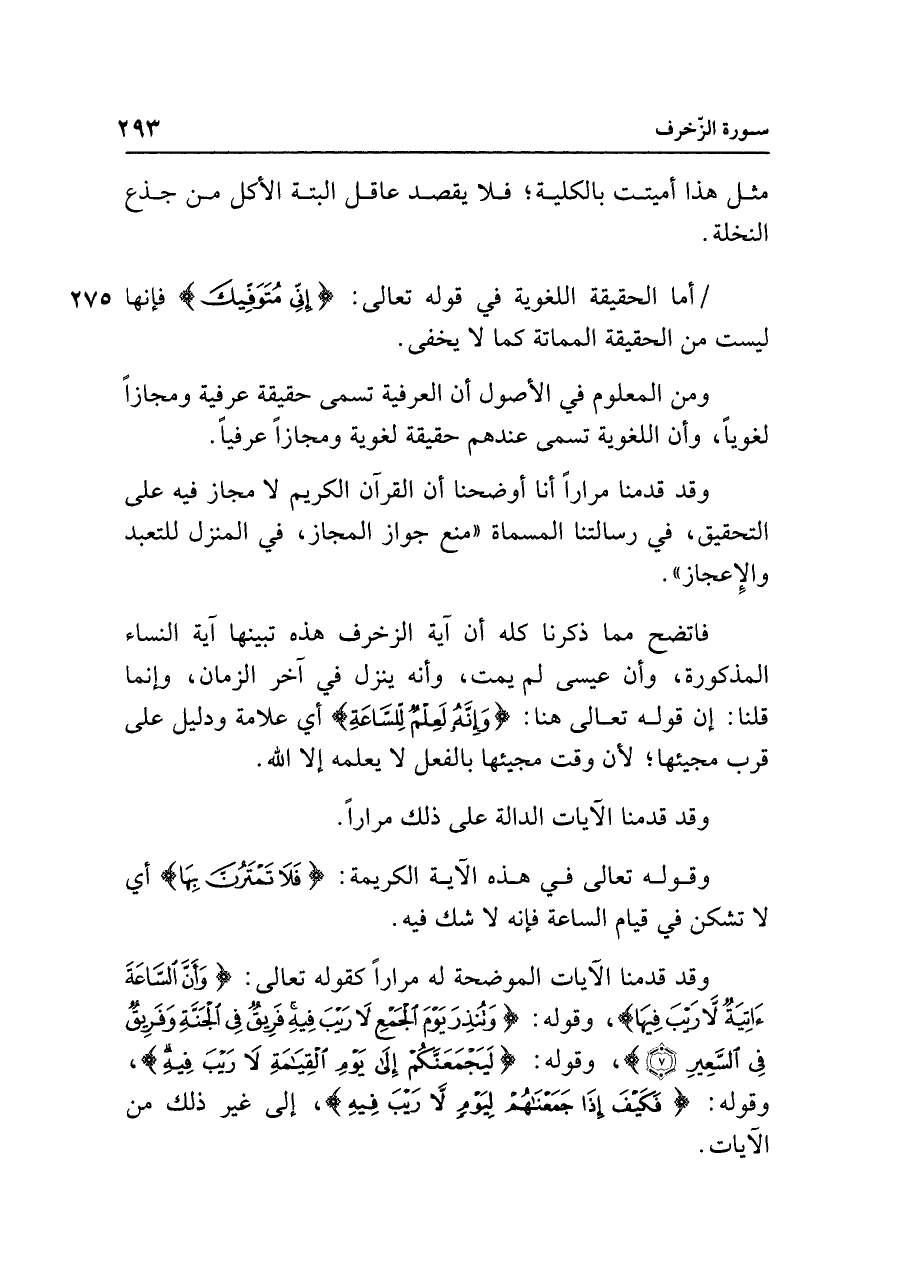 سورة الزّخرف ٢٩٣
مثل هذا أميتت بالكلية؛ فلا يقصد عاقل البتة الأكل من جذع
النخلة.
/ أما الحقيقة اللغوية في قوله تعالى: ﴿إِنِّي مُتَوَفِّيكَ﴾ فإنها ٢٧٥
ليست من الحقيقة المماتة كما لا يخفى.
ومن المعلوم في الأصول أن العرفية تسمى حقيقة عرفية ومجازاً
لغوياً، وأن اللغوية تسمى عندهم حقيقة لغوية ومجازاً عرفياً.
وقد قدمنا مراراً أنا أوضحنا أن القرآن الكريم لا مجاز فيه على
التحقيق، في رسالتنا المسماة «منع جواز المجاز، في المنزل للتعبد
والإِعجاز».
فاتضح مما ذكرنا كله أن آية الزخرف هذه تبينها آية النساء
المذكورة، وأن عيسى لم يمت، وأنه ينزل في آخر الزمان، وإنما
قلنا: إن قوله تعالى هنا: ﴿وَإِنَّهُۥ لَعِلۡمٞ لِّلسَّاعَةِ﴾ أي علامة ودليل على
قرب مجيئها؛ لأن وقت مجيئها بالفعل لا يعلمه إلا الله.
وقد قدمنا الآيات الدالة على ذلك مراراً.
وقوله تعالى في هذه الآية الكريمة: ﴿فَلَا تَمۡتَرُنَّ بِهَا﴾ أي
لا تشكن في قيام الساعة فإنه لا شك فيه.
وقد قدمنا الآيات الموضحة له مراراً كقوله تعالى: ﴿وَأَنَّ ٱلسَّاعَةَ
ءَاتِيَةٞ لَّا رَيۡبَ فِيهَا﴾، وقوله: ﴿وَتُنذِرَ يَوۡمَ ٱلۡجَمۡعِ لَا رَيۡبَ فِيهِۚ فَرِيقٞ فِي ٱلۡجَنَّةِ وَفَرِيقٞ
فِي ٱلسَّعِيرِ ٧﴾، وقوله: ﴿لَيَجۡمَعَنَّكُمۡ إِلَىٰ يَوۡمِ ٱلۡقِيَٰمَةِ لَا رَيۡبَ فِيهِۗ﴾،
وقوله: ﴿فَكَيۡفَ إِذَا جَمَعۡنَٰهُمۡ لِيَوۡمٖ لَّا رَيۡبَ فِيهِ﴾، إلى غير ذلك من
الآيات.